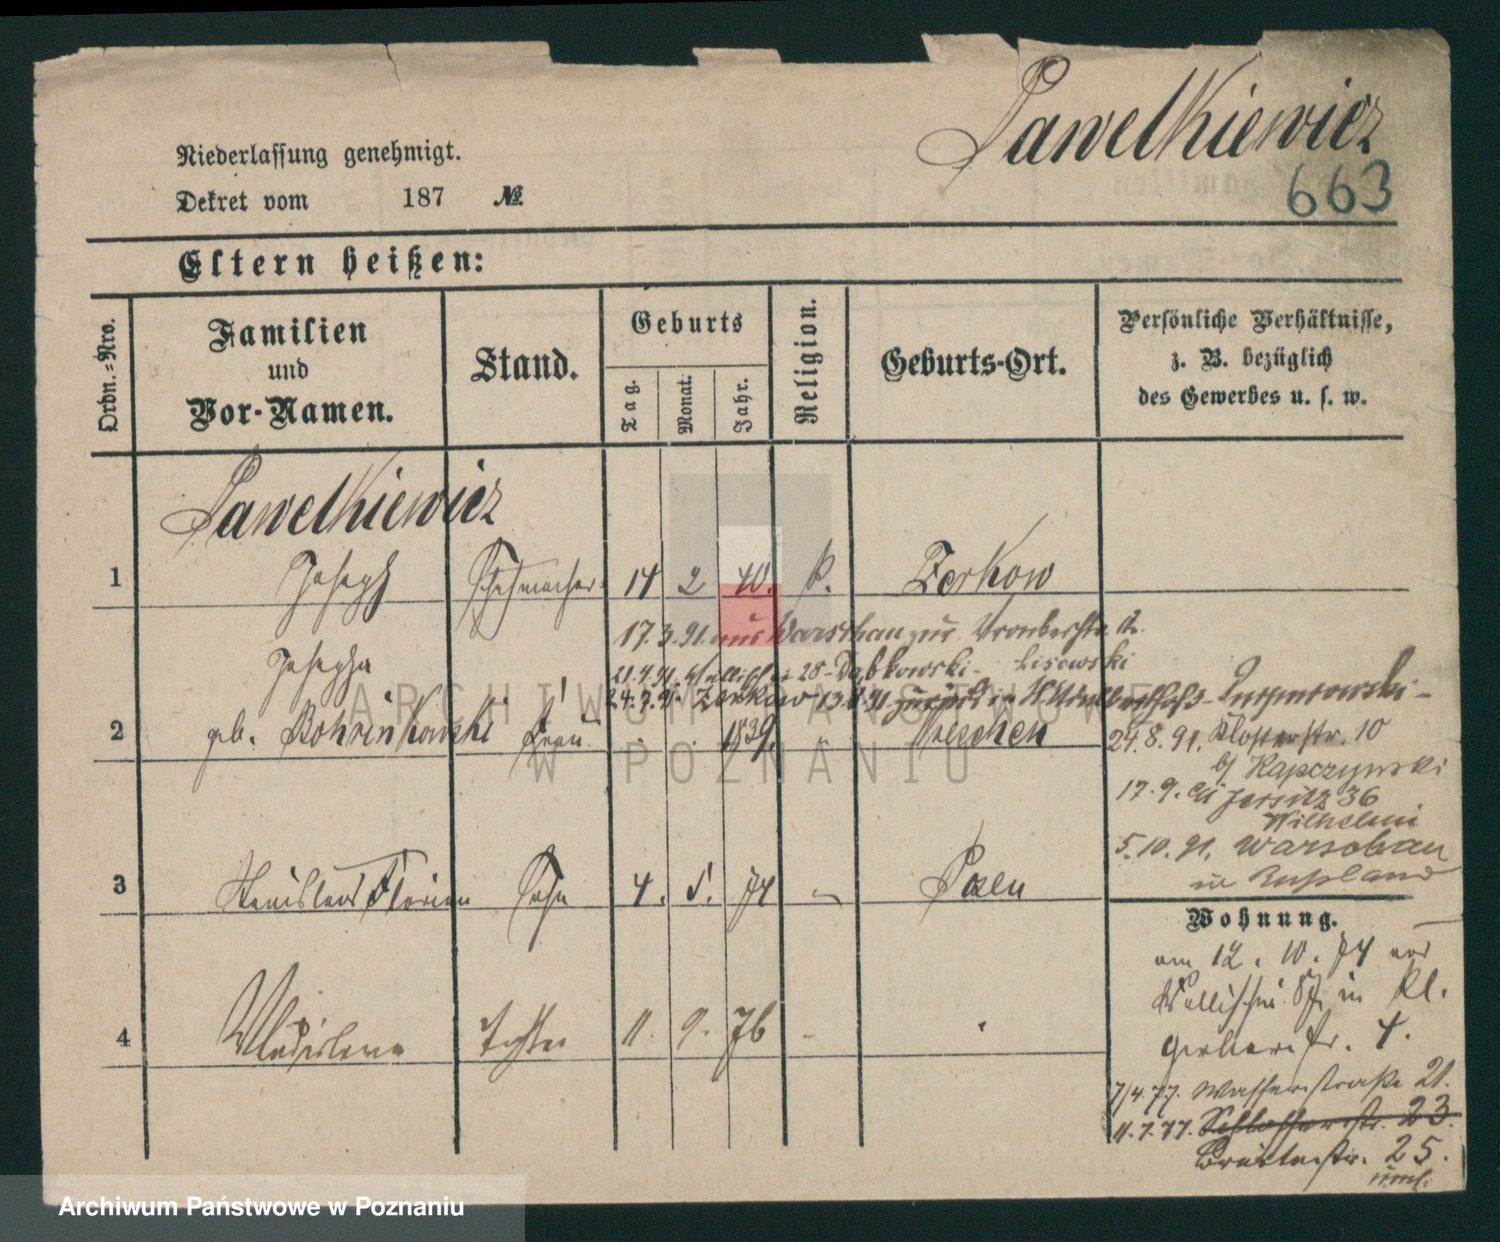 Pawelkiewicz
663
Niederlassung genehmigt.
Dekret vom 187 №
Eltern heißen:
Ordn.-Nro.
Familien und Vor-Namen.
Stand.
Geburts
Tag.
Monat.
Jahr.
Religion.
Geburts-Ort.
Persönliche Verhältnisse,
z. B. bezüglich
des Gewerbes u. s. w.
Pawelkiewicz
1 Joseph Schuhmacher 14 2 40. k. Zerkow
17.3.91. aus Warschau zur
21.4.91. 28 Dąbkowski - Lisewski
24.7.91. Zerkow 13.8.91 zurück in
Josepha
2 geb. Bohrinkowski Frau 1839. Pleschen
24.8.91. Klosterstr. 10
b/ Kapczynski
17.9. Jersitz 36
Wilhelmi
5.10.91. Warschau
in Rußland
3 Stanislaus Florian Sohn 4. 5. 74 Posen
Wohnung.
am 12. 10. 74 von
Wallischei in Kl.
Gerberstr. 4.
4 Wladislawa Tochter 11. 9. 76
7/4.77. Wasserstraße 21.
11.7.77. Schlosserstr. 23.
Breitestr. 25.
ARCHIWUM PAŃSTWOWE
W POZNANIU
Archiwum Państwowe w Poznaniu